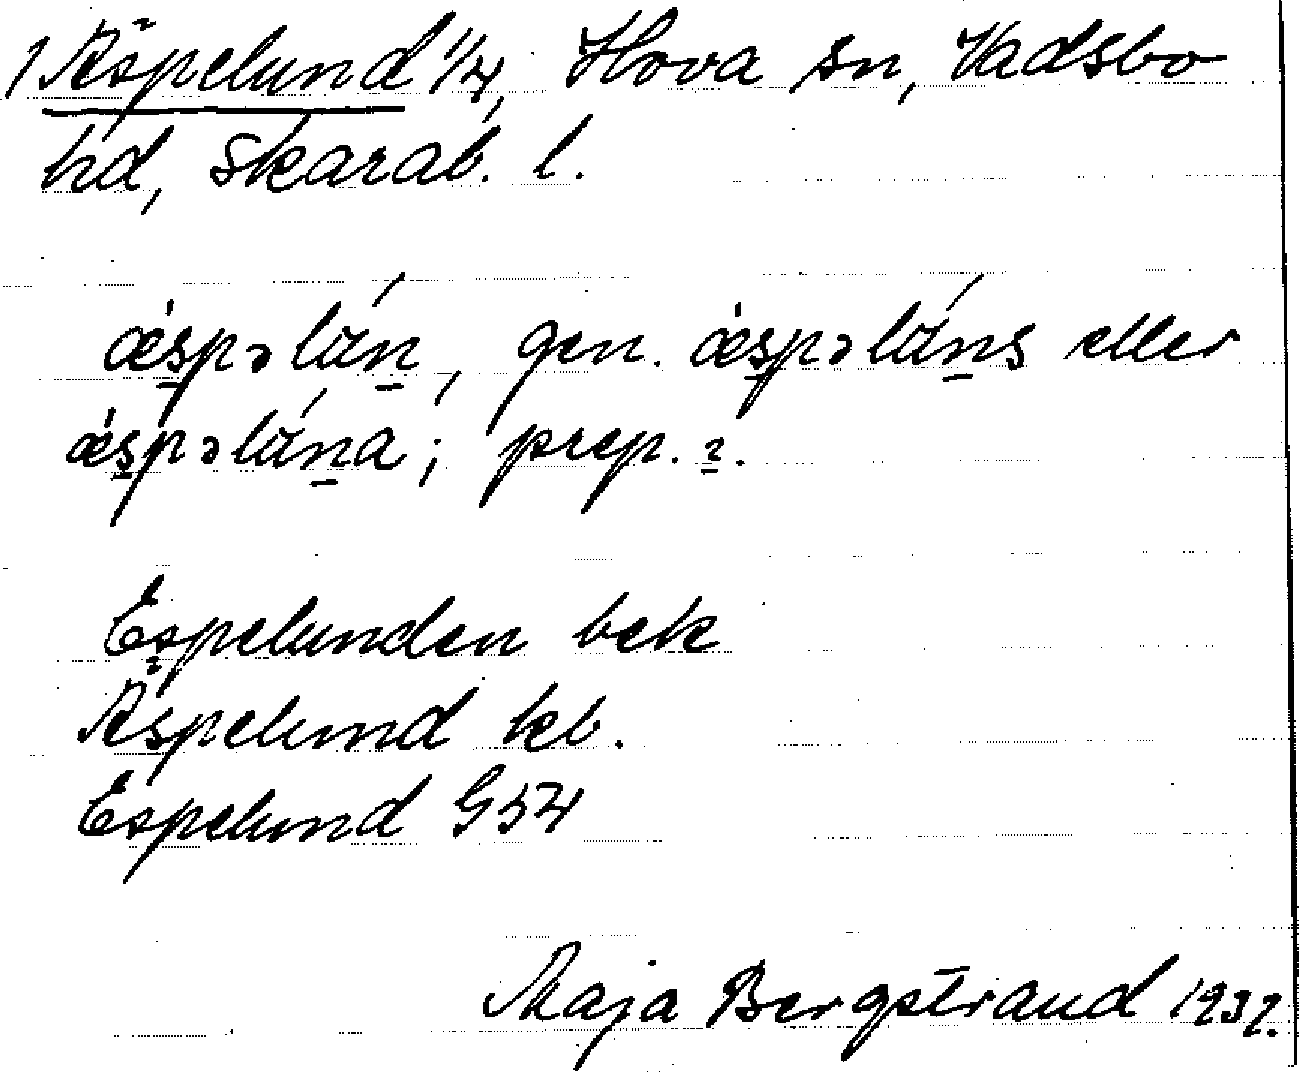 1 Äspelund 1/4, Hova sn, Vadsbo
hd, Skarab. l.
æ̀spəlún, gen. æ̀spəlúns eller
æ̀spəlúna; prep. i.
Espelunden bek
Äspelund kb.
Espelund G54
Maja Bergstrand 1937.